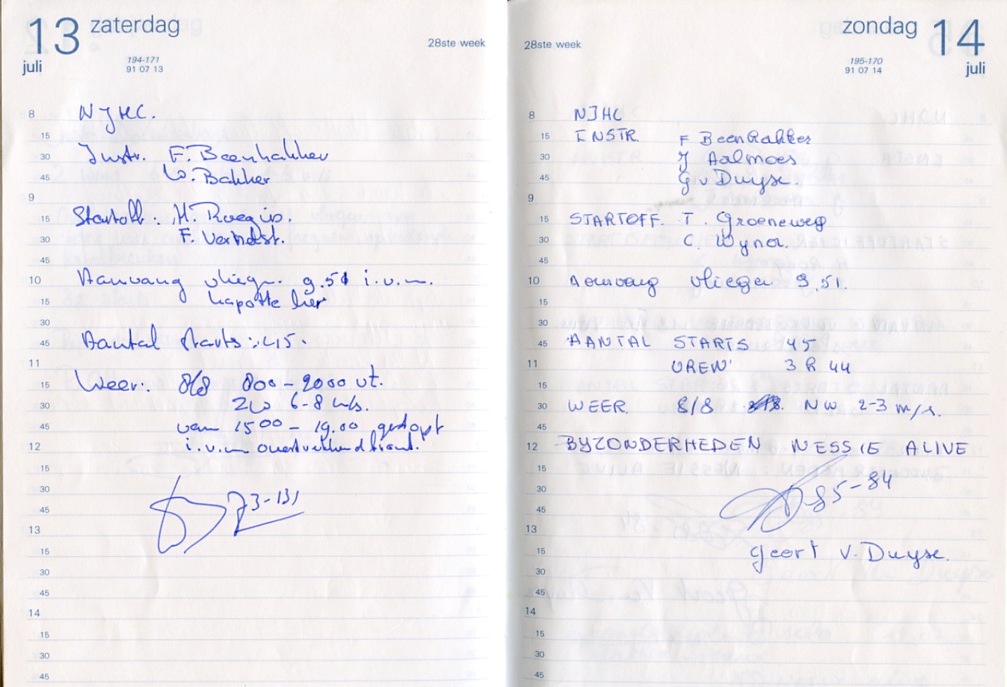 13 zaterdag
juli
194-171
91 07 13
28ste week
8 NJHC.
15
30 Instr. F. Beenhakker
45 W. Bakker
9
15 Startoff: H. Roegis.
30 F. Verhelst.
45
10 Aanvang vliegn. 9.51 i.v.m.
15 kapotte lier
30
45 Aantal starts: 45.
11
15 Weer: 8/8 800 - 2000 vt.
30 ZW 6-8 m/s.
45 van 1500 - 19.00 gestopt
12 i.v.m
15
30 73-131
45
13
15
30
45
14
15
30
45
28ste week
zondag 14
juli
195-170
91 07 14
8 NJHC
15 INSTR. F Beenhakker
30 J Aalmoes
45 G v Duyse.
9
15 STARTOFF. T. Groeneweg
30 C. Wyna.
45
10 Aanvang vliegen 9.51.
15
30
45 AANTAL STARTS 45
11 UREN 3 h 44
15
30 WEER. 8/8 NW 2-3 m/s.
45
12 BYZONDERHEDEN NESSIE ALIVE
15
30 85-84
45
13
15 Geert v. Duyse.
30
45
14
15
30
45